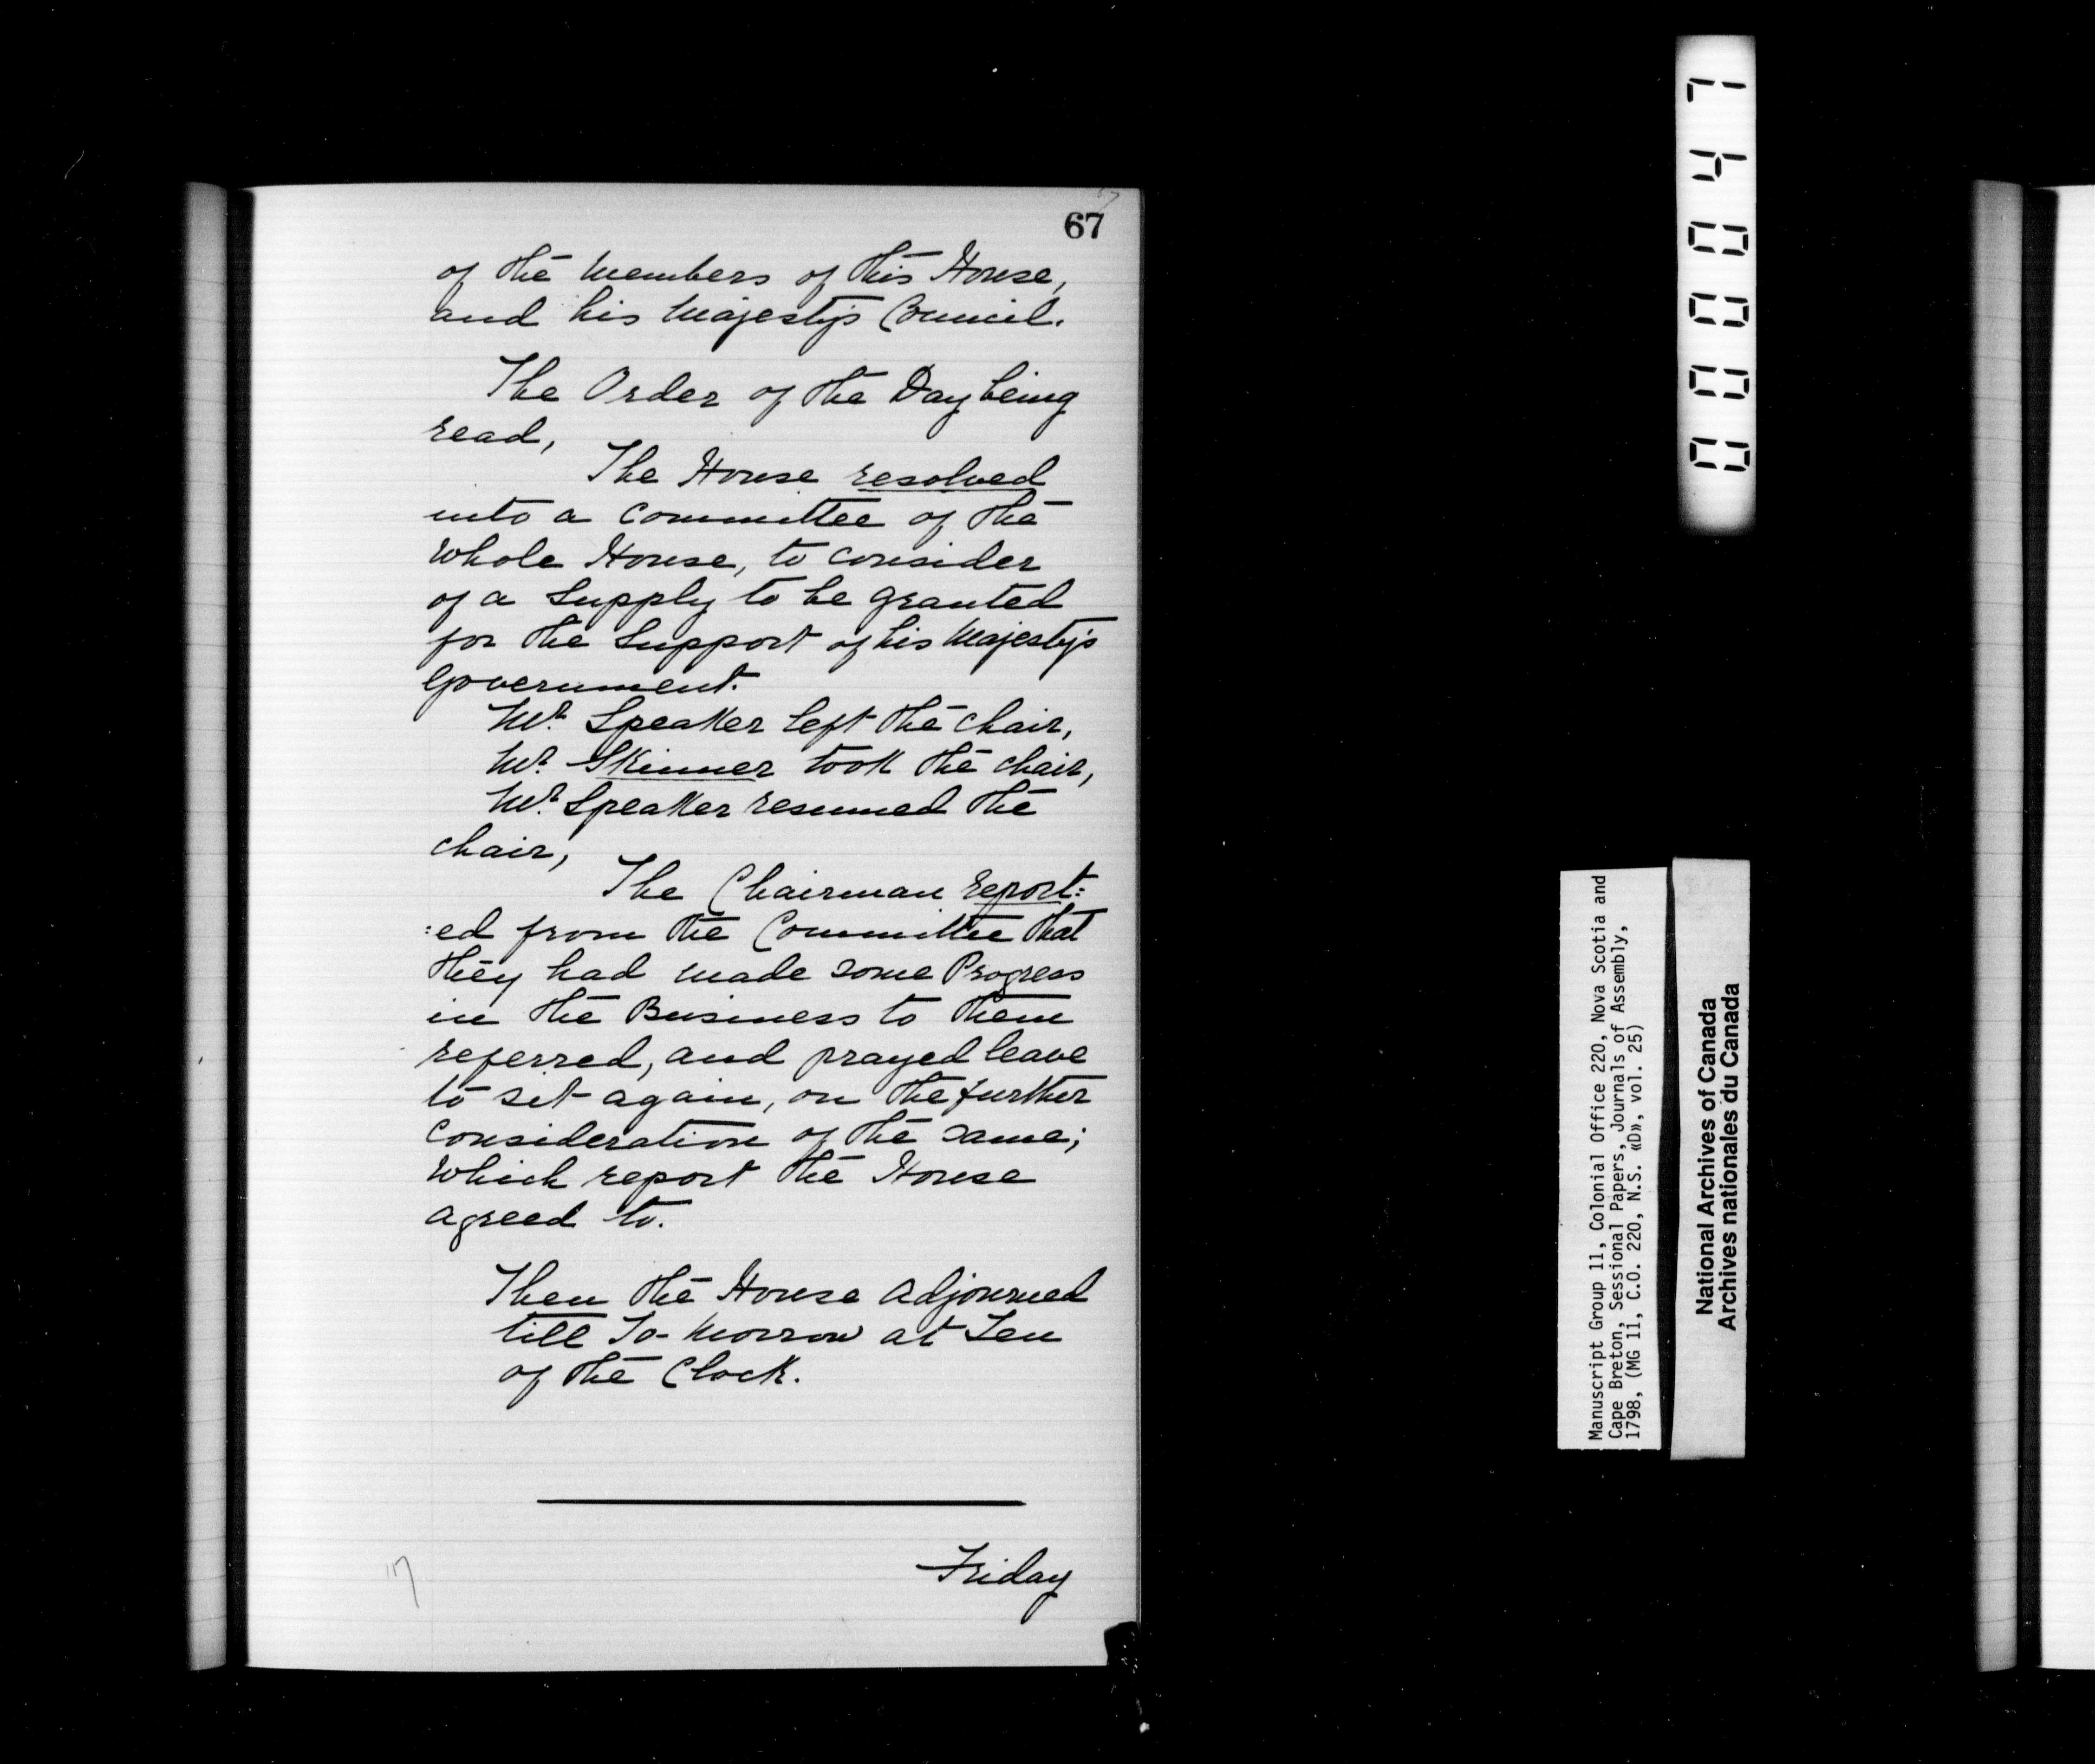 67
of the Members of this House,
and his Majesty's Council.
The Order of the Day being
read,
The House resolved
into a Committee of the
Whole House, to consider
of a Supply to be granted
for the Support of his Majesty's
Government.
Mr. Speaker left the chair,
Mr. Skinner took the chair,
Mr. Speaker resumed the
chair,
The Chairman report:
:ed from the Committee that
they had made some Progress
in the Business to them
referred, and prayed leave
to sit again, on the further
Consideration of the same;
Which report the House
agreed to.
Then the House adjourned
till To-morrow at Ten
of the Clock.
Friday
000047
Manuscript Group 11, Colonial Office 220, Nova Scotia and
Cape Breton, Sessional Papers, Journals of Assembly,
1798, (MG 11, C.O. 220, N.S. «D», vol. 25)
National Archives of Canada
Archives nationales du Canada